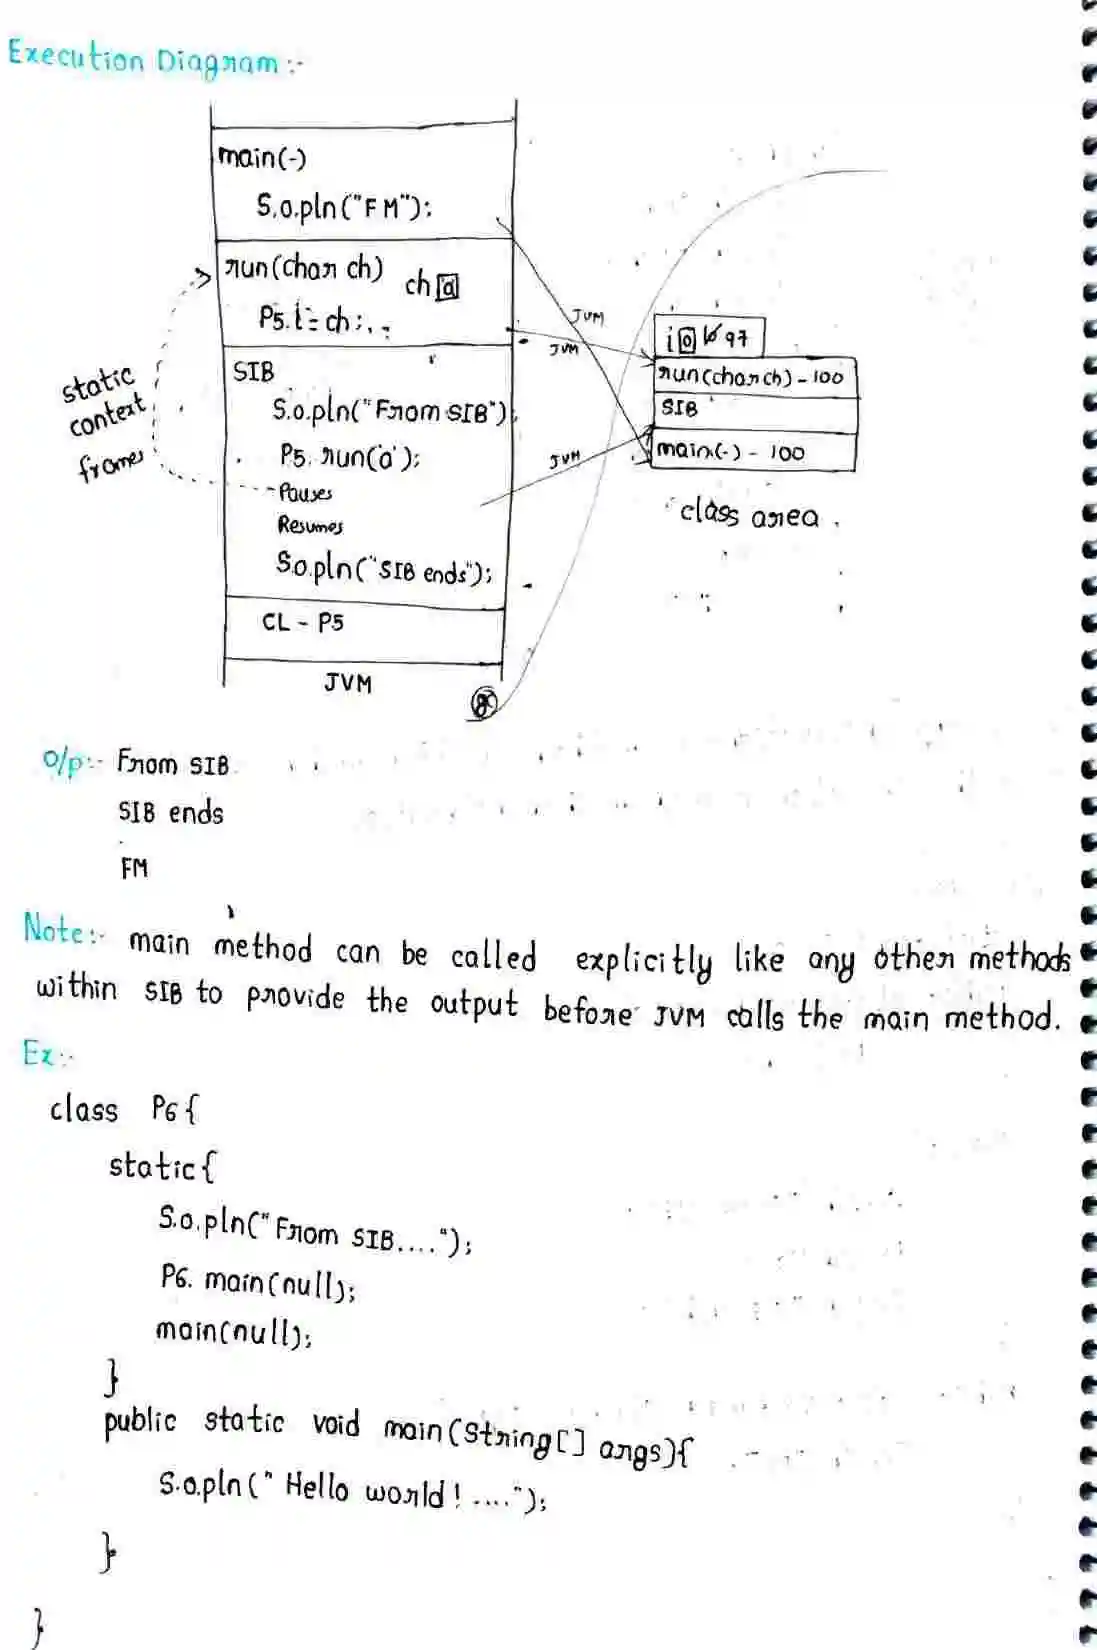 Execution Diagram :-
main(-)
S.o.pln("FM");
run(char ch) ch a
P5.i = ch;
SIB
S.o.pln("From SIB");
P5. run('a');
Pauses
Resumes
S.o.pln("SIB ends");
CL - P5
JVM
static
context
frames
JVM
JVM
JVM
i 0 97
run(char ch) - 100
SIB
main(-) - 100
class area .
O/p:- From SIB
SIB ends
FM
Note:- main method can be called explicitly like any other methods
within SIB to provide the output before JVM calls the main method.
Ex:-
class P6 {
static {
S.o.pln("From SIB....");
P6. main(null);
main(null);
}
public static void main(String[] args){
S.o.pln(" Hello world! ....");
}
}